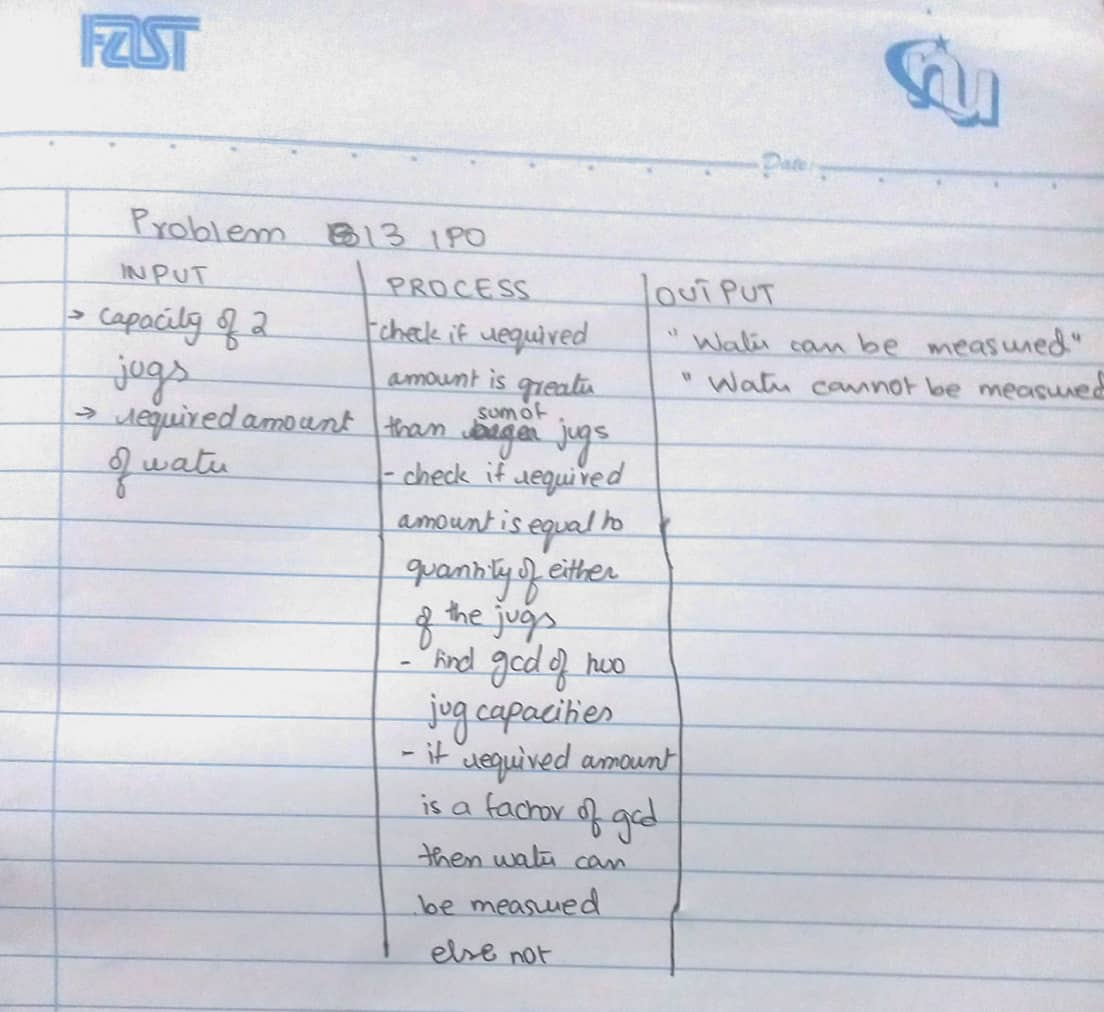 FAST
nu
Date:
Problem 13 IPO
INPUT
→ capacity of 2
jugs
→ required amount
of water
PROCESS
- check if required
amount is greater
than sum of jugs
- check if required
amount is equal to
quantity of either
of the jugs
- find gcd of two
jug capacities
- if required amount
is a factor of gcd
then water can
be measured
else not
OUTPUT
" Water can be measured"
" Water cannot be measured